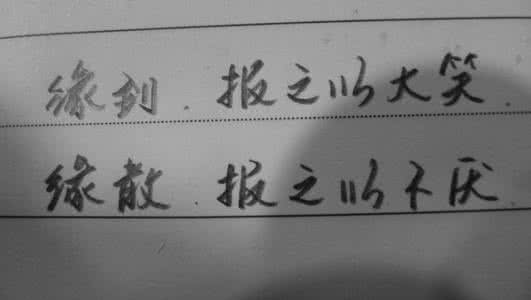 缘到.报之以大笑.
缘散.报之以不厌.